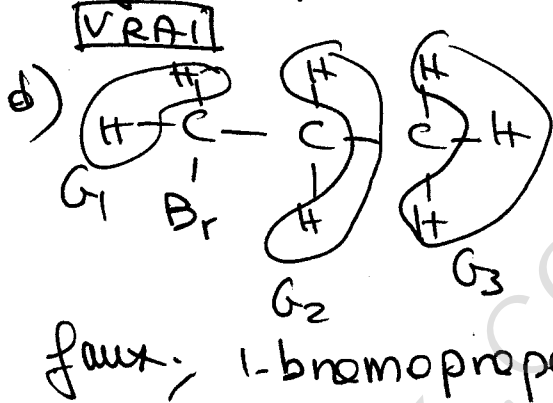 VRAI
d) H H H
H - C - C - C - H
G1 Br H H
G2 G3
faux; 1-bromoprop